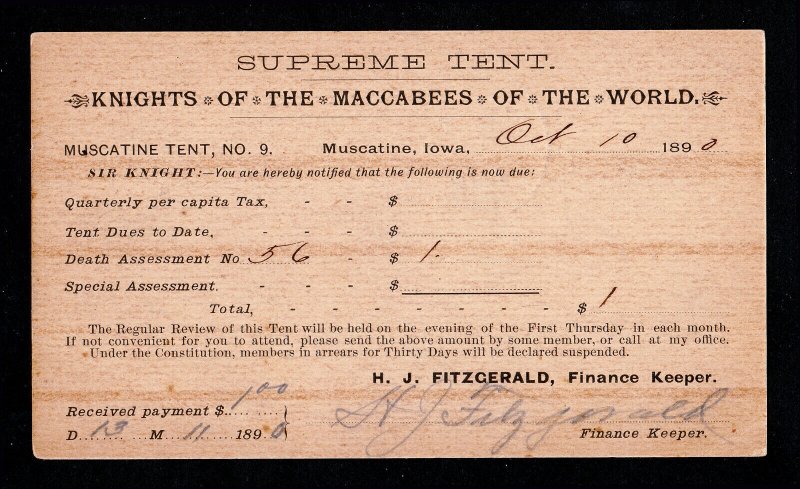 SUPREME TENT.
KNIGHTS * OF * THE * MACCABEES * OF * THE * WORLD.
MUSCATINE TENT, NO. 9. Muscatine, Iowa, Oct 10 1890
SIR KNIGHT:—You are hereby notified that the following is now due:
Quarterly per capita Tax, - - $
Tent Dues to Date, - - - $
Death Assessment No 56 - $ 1.
Special Assessment. - - - $
Total, - - - - - - - $ 1
The Regular Review of this Tent will be held on the evening of the First Thursday in each month.
If not convenient for you to attend, please send the above amount by some member, or call at my office.
Under the Constitution, members in arrears for Thirty Days will be declared suspended.
H. J. FITZGERALD, Finance Keeper.
Received payment $ 1.00
H J Fitzgerald
D. 13 M 11 1890 Finance Keeper.